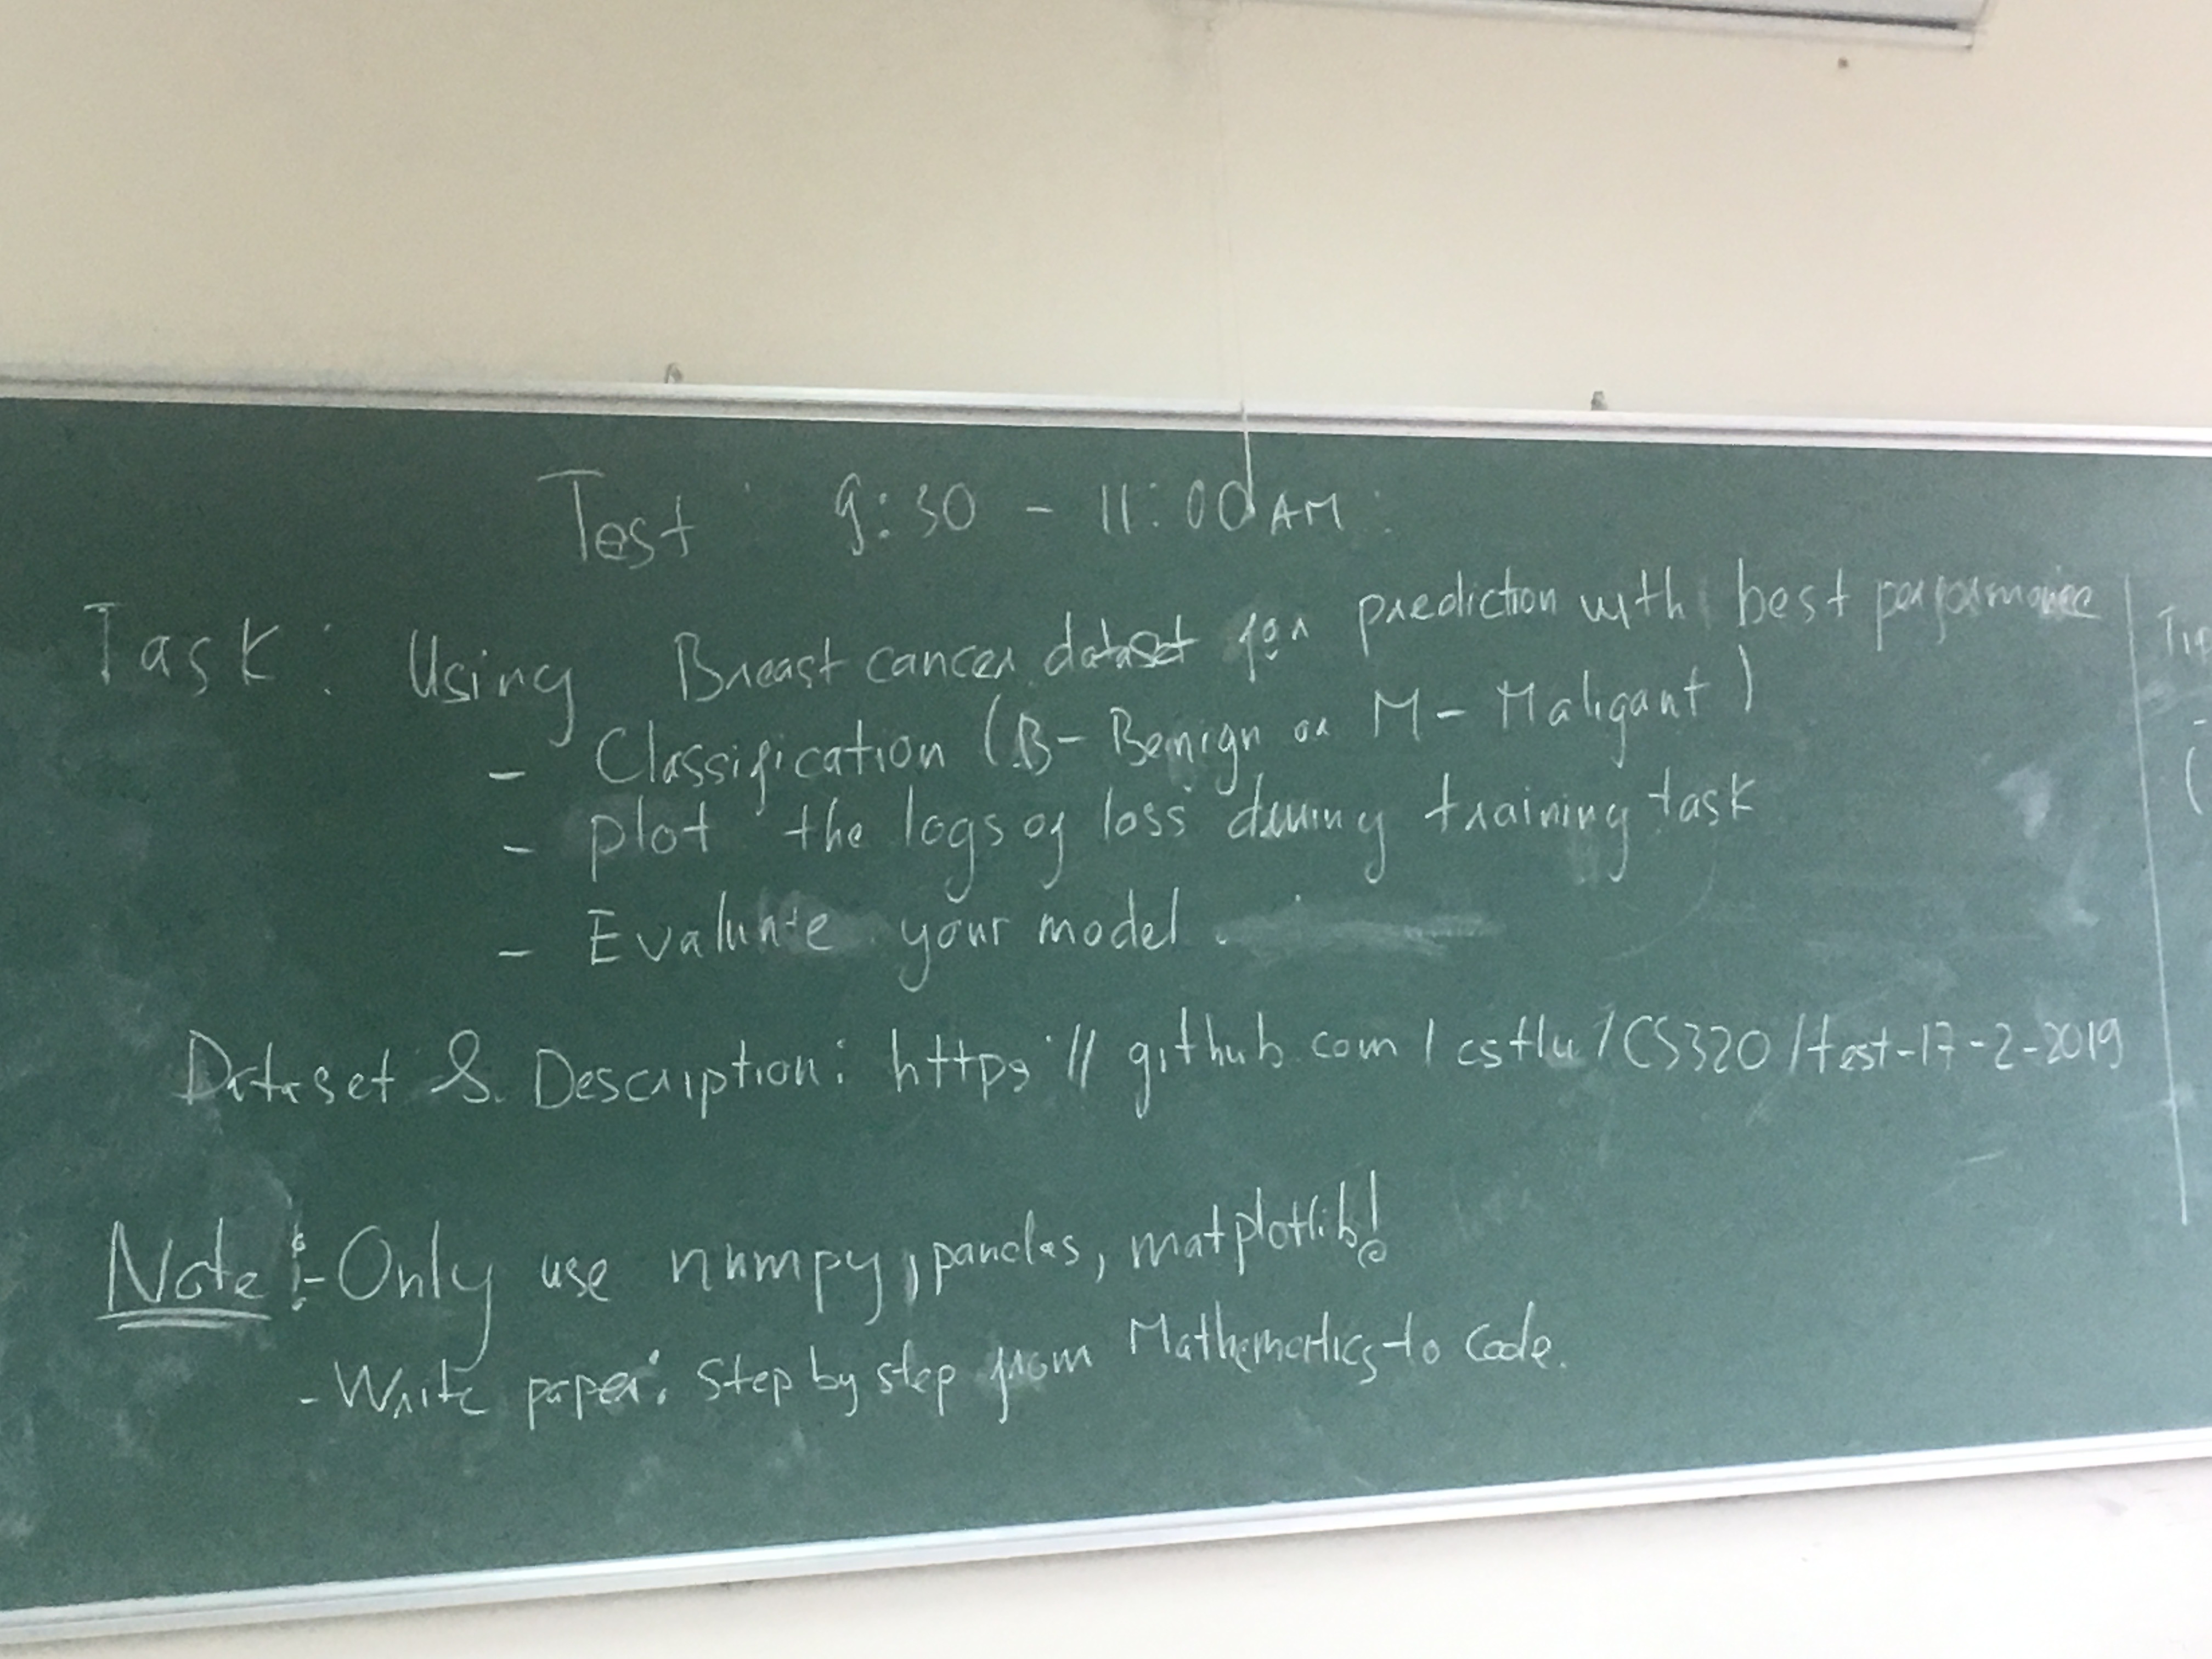 Test : 9:30 - 11:00 AM :
Task : Using Breast cancer dataset for prediction with best performance
- Classification (B - Benign or M - Maligant)
- plot the logs of loss during training task
- Evaluate your model.
Dataset & Description: https://github.com/cstlu/CS320/test-17-2-2019
Note : - Only use numpy, pandas, matplotlib!
- Write paper: Step by step from Mathematics to Code.